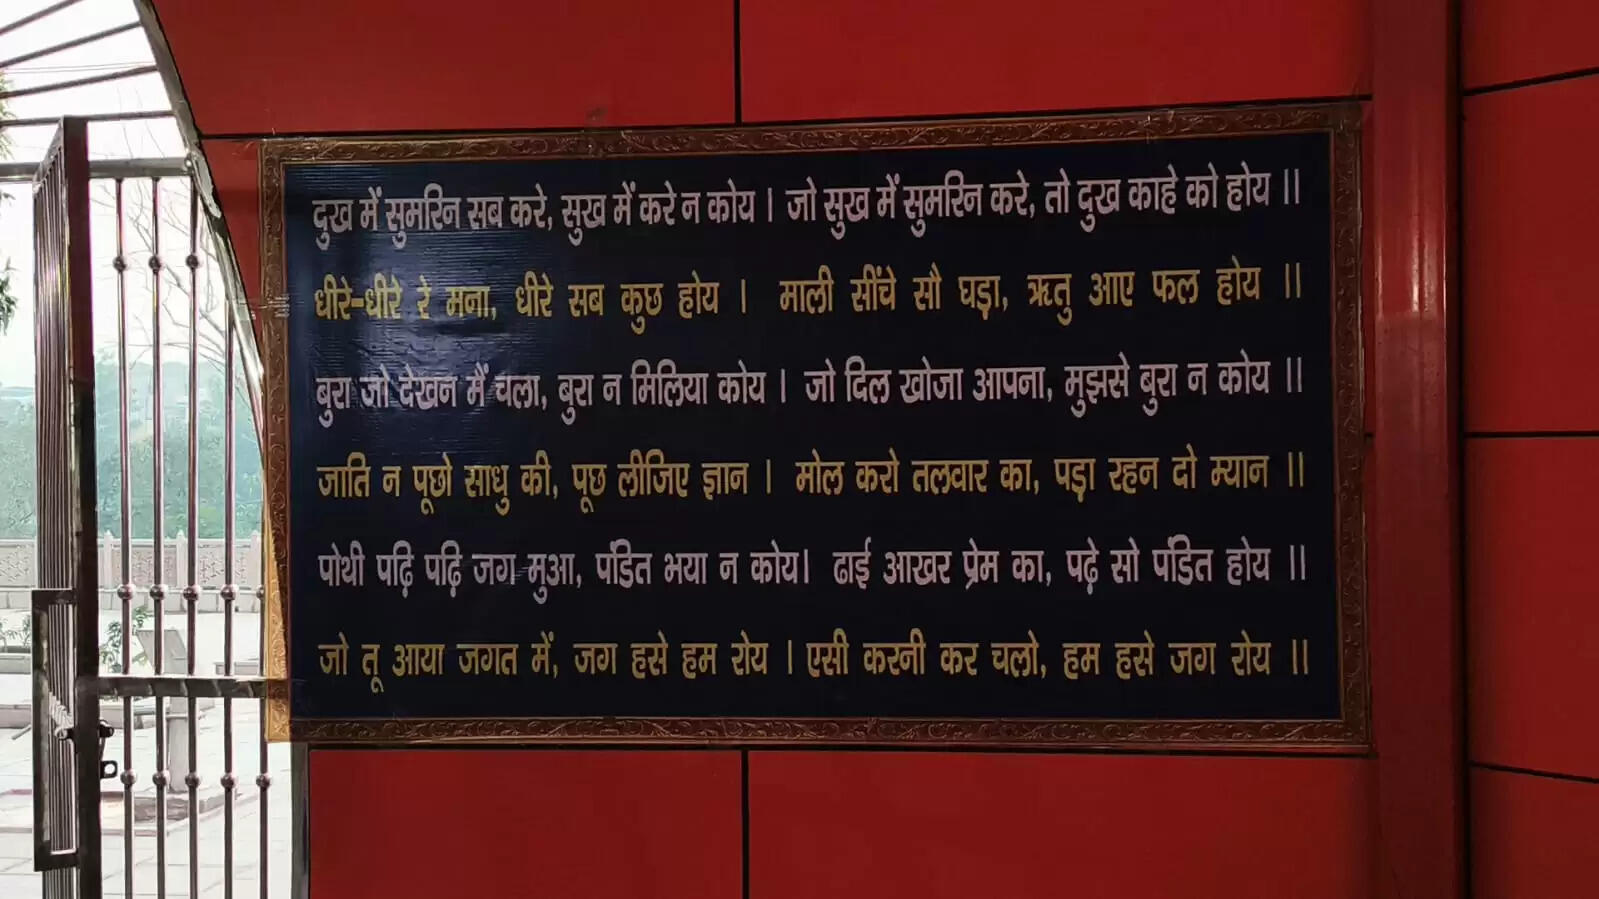 दुख में सुमरिन सब करे, सुख में करे न कोय । जो सुख में सुमरिन करे, तो दुख काहे को होय ॥
धीरे-धीरे रे मना, धीरे सब कुछ होय । माली सींचे सौ घड़ा, ऋतु आए फल होय ॥
बुरा जो देखन मैं चला, बुरा न मिलिया कोय । जो दिल खोजा आपना, मुझसे बुरा न कोय ॥
जाति न पूछो साधु की, पूछ लीजिए ज्ञान । मोल करो तलवार का, पड़ा रहन दो म्यान ॥
पोथी पढ़ि पढ़ि जग मुआ, पंडित भया न कोय। ढाई आखर प्रेम का, पढ़े सो पंडित होय ॥
जो तू आया जगत में, जग हसे हम रोय । एसी करनी कर चलो, हम हसे जग रोय ॥